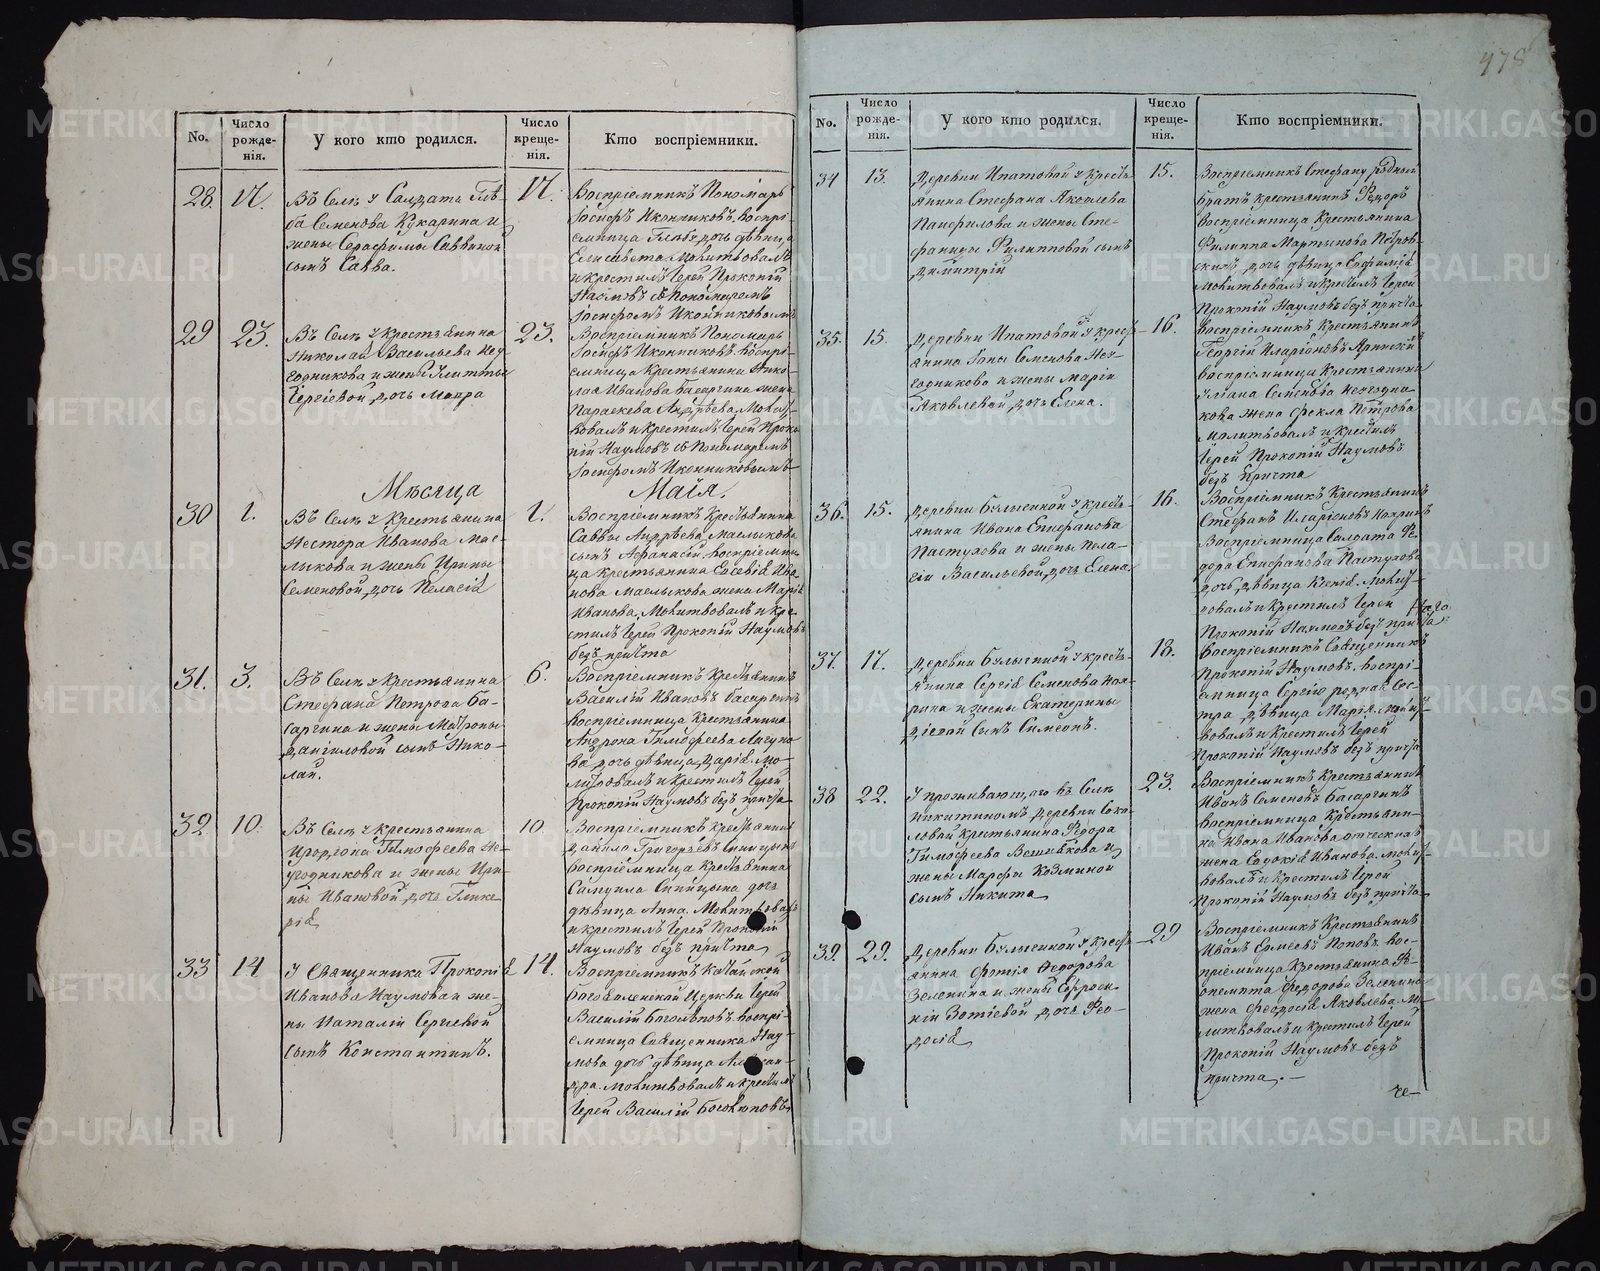 No.
Число рожде-нія.
У кого кто родился.
Число креще-нія.
Кто воспріемники.
28.
17.
Въ Селѣ у Солдата Глѣ-
ба Семенова Кукарина и
жены Серафимы Саввиной
сынъ Савва.
17.
Воспріемникъ Пономарь
Іосифъ Иконниковъ, воспрі-
емница Глѣба дочь дѣвица
Елисавета. Молитвовалъ
и крестилъ Іерей Прокопій
Наумовъ съ Пономаремъ
Іосифомъ Иконниковымъ
29
23.
Въ Селѣ у Крестьянина
Николая Васильева Не-
годникова и жены Улитты
Сергіевой, дочь Мавра
23.
Воспріемникъ Пономарь
Іосифъ Иконниковъ, воспрі-
емница Крестьянина Нико-
лая Иванова Басаргина жена
Параскева Андрѣева. Молит-
вовалъ и крестилъ Іерей Проко
пій Наумовъ съ Пономаремъ
Іосифомъ Иконниковымъ
Мѣсяца Маія.
30
1.
Въ Селѣ у Крестьянина
Нестора Иванова Мас-
лыкова и жены Ирины
Семеновой, дочь Пелагія
1.
Воспріемникъ Крестьянина
Саввы Андрѣева Маслыкова
сынъ Афанасій, воспріемни
ца крестьянина Евсевія Ива
нова Маслыкова жена Марія
Иванова. Молитвовалъ и кре-
стилъ Іерей Прокопій Наумовъ
безъ причта
31.
3.
Въ Селѣ у Крестьянина
Стефана Петрова Ба-
саргина и жены Матроны
Даниловой сынъ Нико-
лай.
6.
Воспріемникъ Крестьянинъ
Василій Ивановъ Басаргинъ
воспріемница Крестьянина
Андрона Тимофеева
ва дочь дѣвица Дарія. Мо-
литвовалъ и крестилъ Іерей
Прокопій Наумовъ безъ причта
32
10.
Въ Селѣ у Крестьянина
Тимофеева Не-
годникова и жены Ири-
ны Ивановой, дочь Глике
рія
10.
Воспріемникъ крестьянинъ
Данило Григорьевъ Синицынъ
воспріемница Крестьянина
Самуила Синицына дочь
дѣвица Анна. Молитвовалъ
и крестилъ Іерей Прокопій
Наумовъ безъ причта
33
14
У Священника Прокопія
Иванова Наумова и же-
ны Наталіи Сергіевой
сынъ Константинъ.
14.
Воспріемникъ Катайской
Богоявленской Церкви Іерей
Василій Боголѣповъ. воспрі-
емница Священника Нау-
мова дочь дѣвица Алексан-
дра. Молитвовалъ и крестилъ
Іерей Василій Боголѣповъ
478
No.
Число рожде-нія.
У кого кто родился.
Число креще-нія.
Кто воспріемники.
34
13.
Деревни Ипатовой у кресть-
янина Стефана Яковлева
Панфилова и жены Сте-
фаниды Филипповой сынъ
Димитрій
15.
Воспріемникъ Стефану родный
братъ крестьянинъ Федоръ
воспріемница Крестьянина
Филиппа Мартынова Петров-
скихъ, дочь дѣвица Евфимія
Молитвовалъ и крестилъ Іерей
Прокопій Наумовъ безъ причта
35.
15.
Деревни Ипатовой у кресть-
янина Семенова Нег-
годникова и жены Маріи
Яковлевой, дочь Елена.
16.
Воспріемникъ Крестьянинъ
Георгій Иларіоновъ
воспріемница крестьянина
Семенова Негодни-
кова жена Фекла Петрова
молитвовалъ и крестилъ
Іерей Прокопій Наумовъ
безъ Причта
36.
15.
Деревни у кресть-
янина Ивана Епифанова
Пастухова и жены Пела-
гіи Васильевой, дочь Елена
16.
Воспріемникъ Крестьянинъ
Стефанъ Иларіоновъ
Воспріемница Солдата Фе-
дора Епифанова Пастухова
дочь дѣвица Ксенія. Молит-
вовалъ и крестилъ Іерей
Прокопій Наумовъ безъ причта
37.
17.
Деревни у кресть-
янина Сергія Семенова
и жены Екатерины
сынъ Симеонъ.
18.
Воспріемникъ Священникъ
Прокопій Наумовъ. воспрі-
емница Сергію родная сес-
тра дѣвица Марія. Молит-
вовалъ и крестилъ Іерей
Прокопій Наумовъ безъ причта
38
22.
У проживающаго въ Селѣ
Никитиномъ Деревни Соко-
ловой крестьянина Федора
Тимофеева и
жены Марфы Козминой
сынъ Никита
23.
Воспріемникъ Крестьянинъ
Иванъ Семеновъ Басаргинъ
воспріемница Крестьяни-
на Ивана Иванова
жена Евдокія Иванова. Молит-
вовалъ и крестилъ Іерей
Прокопій Наумовъ безъ причта
39.
29.
Деревни у кресть-
янина Фотія Федорова
Зеленина и жены Евфроси-
ніи Зотіевой, дочь Фео-
досія
29
Воспріемникъ Крестьянинъ
Иванъ Ермѣевъ Поповъ. вос-
пріемница Крестьянина
Федорова Зеленина
жена Феодосія Яковлева. Мо-
литвовалъ и крестилъ Іерей
Прокопій Наумовъ безъ
причта.
че-
METRIKI.GASO-URAL.RU